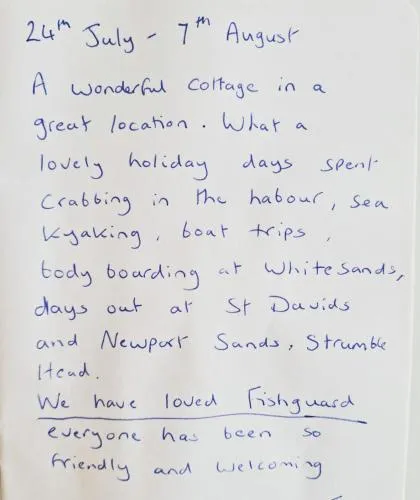 24th July - 7th August
A wonderful cottage in a
great location. What a
lovely holiday days spent
Crabbing in the habour, sea
kyaking, boat trips,
body boarding at Whitesands,
days out at St Davids
and Newport Sands, Strumble
Head.
We have loved Fishguard
everyone has been so
friendly and welcoming